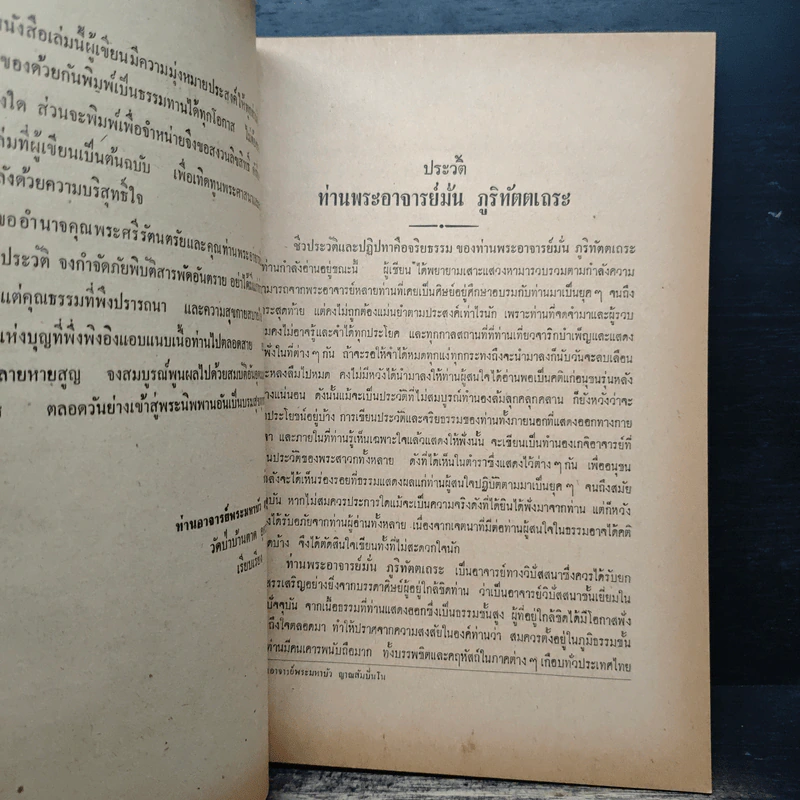 นังสือเล่มนี้ผู้เขียนมีความมุ่งหมายประสงค์ให้
ของด้วยกันพิมพ์เป็นธรรมทานได้ทุกโอกาส
งใด ส่วนจะพิมพ์เพื่อจำหน่ายจึงขอสงวนลิขสิทธิ์
ล่มที่ผู้เขียนเป็นต้นฉบับ เพื่อเทิดทูนพระศาสนา
ลังด้วยความบริสุทธิ์ใจ
ขออำนาจคุณพระศรีรัตนตรัยและคุณท่านพระอาจารย์
ประวัติ จงกำจัดภัยพิบัติสารพัดอันตราย อย่าได้
แต่คุณธรรมที่พึงปรารถนา และความสุขกายสบายใจ
แห่งบุญที่พึ่งพิงอิงแอบแนบเนื้อท่านไปตลอดสาย
ลายหายสูญ จงสมบูรณ์พูนผลไปด้วยสมบัติ
ร ตลอดวันย่างเข้าสู่พระนิพพานอันเป็นบรมสุข
ท่านอาจารย์พระมหาบัว
วัดป่าบ้านตาด
เรียบเรียง
ประวัติ
ท่านพระอาจารย์มั่น ภูริทัตตเถระ
ชีวประวัติและปฏิปทาคือจริยธรรม ของท่านพระอาจารย์มั่น ภูริทัตตเถระ
ท่านกำลังอ่านอยู่ขณะนี้ ผู้เขียนได้พยายามเสาะแสวงหามารวบรวมตามกำลังความ
ามารถจากพระอาจารย์หลายท่านที่เคยเป็นศิษย์อยู่ศึกษาอบรมกับท่านมาเป็นยุค ๆ จนถึง
ระสุดท้าย แต่คงไม่ถูกต้องแม่นยำตามประสงค์เท่าไรนัก เพราะท่านที่จดจำมาและผู้รวบ
มคงไม่อาจรู้และจำได้ทุกประโยค และทุกกาลสถานที่ที่ท่านเที่ยวจาริกบำเพ็ญและแสดง
ฟังในที่ต่าง ๆ กัน ถ้าจะรอให้จำได้หมดทุกแง่ทุกกระทงถึงจะนำมาลงก็นับวันจะลบเลือน
หลงลืมไปหมด คงไม่มีหวังได้นำมาลงให้ท่านผู้สนใจได้อ่านพอเป็นคติแก่อนุชนรุ่นหลัง
างแน่นอน ดังนั้นแม้จะเป็นประวัติที่ไม่สมบูรณ์ทำนองล้มลุกคลุกคลาน ก็ยังหวังว่าจะ
ประโยชน์อยู่บ้าง การเขียนประวัติและจริยธรรมของท่านทั้งภายนอกที่แสดงออกทางกาย
จา และภายในที่ท่านรู้เห็นเฉพาะใจแล้วแสดงให้ฟังนั้น จะเขียนเป็นทำนองเกจิอาจารย์ที่
นประวัติของพระสาวกทั้งหลาย ดังที่ได้เห็นในตำราซึ่งแสดงไว้ต่าง ๆ กัน เพื่ออนุชน
หลังจะได้เห็นร่องรอยที่ธรรมแสดงผลแก่ท่านผู้สนใจปฏิบัติตามมาเป็นยุค ๆ จนถึงสมัย
จุบัน หากไม่สมควรประการใดแม้จะเป็นความจริงดังที่ได้ยินได้ฟังมาจากท่าน แต่ก็หวัง
งได้รับอภัยจากท่านผู้อ่านทั้งหลาย เนื่องจากเจตนาที่มีต่อท่านผู้สนใจในธรรมอาจได้คติ
ดบ้าง จึงได้ตัดสินใจเขียนทั้งที่ไม่สะดวกใจนัก
ท่านพระอาจารย์มั่น ภูริทัตตเถระ เป็นอาจารย์ทางวิปัสสนาซึ่งควรได้รับยก
สรรเสริญอย่างยิ่งจากบรรดาศิษย์ผู้อยู่ใกล้ชิดท่าน ว่าเป็นอาจารย์วิปัสสนาชั้นเยี่ยมใน
ปัจจุบัน จากเนื้อธรรมที่ท่านแสดงออกซึ่งเป็นธรรมชั้นสูง ผู้ที่อยู่ใกล้ชิดได้มีโอกาสฟัง
ถึงใจตลอดมา ทำให้ปราศจากความสงสัยในองค์ท่านว่า สมควรตั้งอยู่ในภูมิธรรมชั้น
ท่านมีคนเคารพนับถือมาก ทั้งบรรพชิตและคฤหัสถ์ในภาคต่าง ๆ เกือบทั่วประเทศไทย
นอาจารย์พระมหาบัว ญาณสัมปันโน